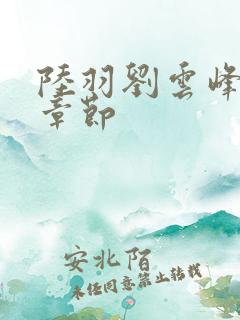 陸羽劉雲峰
章節
安北陌
未经同意禁止转载